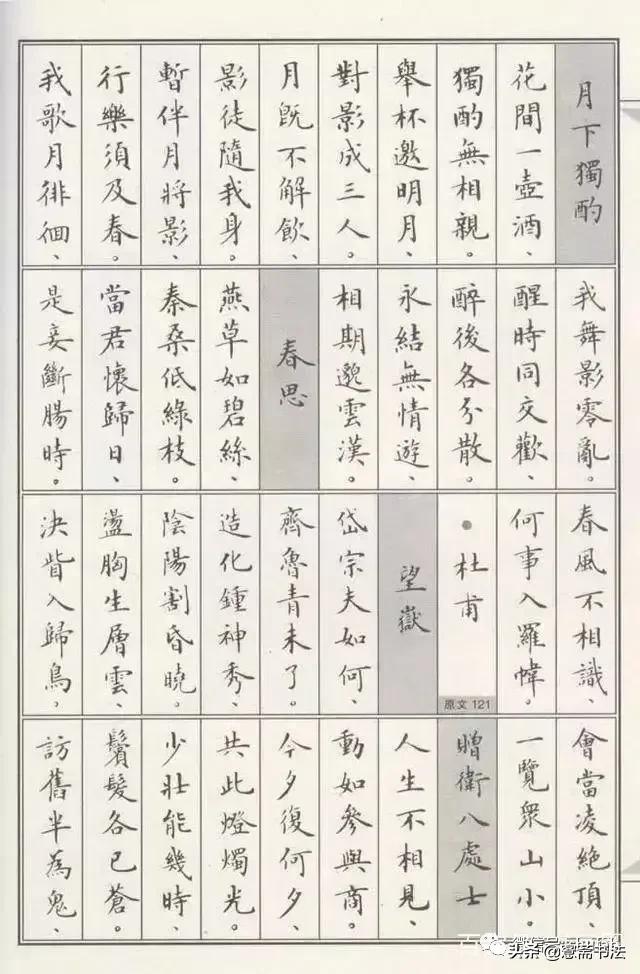 月下獨酌
花間一壺酒、
獨酌無相親。
舉杯邀明月、
對影成三人。
月既不解飲、
影徒隨我身。
暫伴月將影、
行樂須及春。
我歌月徘徊、
我舞影零亂。
醒時同交歡、
醉後各分散。
永結無情遊、
相期邈雲漢。
春思
燕草如碧絲、
秦桑低綠枝。
當君懷歸日、
是妾斷腸時。
春風不相識、
何事入羅幃。
●杜甫
原文 121
望嶽
岱宗夫如何、
齊魯青未了。
造化鍾神秀、
陰陽割昏曉。
盪胸生層雲、
決眥入歸鳥。
會當凌絕頂、
一覽衆山小。
贈衛八處士
人生不相見、
動如參與商。
今夕復何夕、
共此燈燭光。
少壯能幾時、
鬢髮各已蒼。
訪舊半為鬼、
头条@慧斋书法